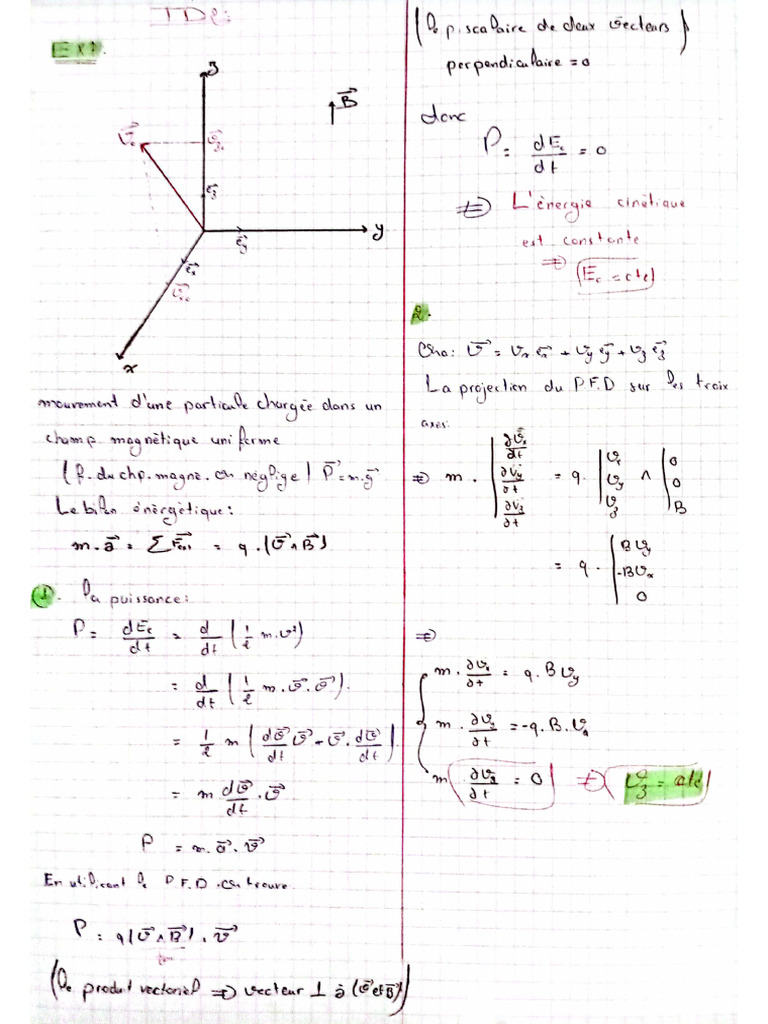 TD2:
Ex1.
z
B⃗
v⃗₀
v⃗z₀
e⃗z
y
e⃗y
e⃗x
v⃗x₀
x
mouvement d'une particule chargée dans un
champ magnétique uniforme
(f. du chp. magne. on néglige) P⃗ = m.g⃗
Le bilan énérgétique:
m.a⃗ = ∑F⃗ext = q.(v⃗∧B⃗)
1. la puissance:
P = dEc/dt = d/dt (1/2 m.v²)
= d/dt (1/2 m.v⃗.v⃗).
= 1/2 m (dv⃗/dt v⃗ - v⃗.dv⃗/dt).
= m dv⃗/dt . v⃗
P = m.a⃗.v⃗
En utilisant le P.F.D. on trouve
P = q(v⃗∧B⃗).v⃗
(le produit vectoriel ⇒ vecteur ⊥ à (v⃗ et B⃗))
(le p. scalaire de deux vecteurs)
perpendiculaire = 0
donc
P = dEc/dt = 0
⇒ L'énergie cinétique
est constante
⇒ (Ec = cte)
2.
v⃗ = vx e⃗x + vy e⃗y + vz e⃗z
La projection du P.F.D sur les troix
axes:
⇒ m. | ∂vx/∂t ∂vy/∂t ∂vz/∂t = q. | vx vy vz ∧ | 0 0 B
= q. | Bvy -Bvx 0
⇒
m. ∂vx/∂t = q.Bvy
m. ∂vy/∂t = -q.B.vx
m ∂vz/∂t = 0 ⇒ vz = cte